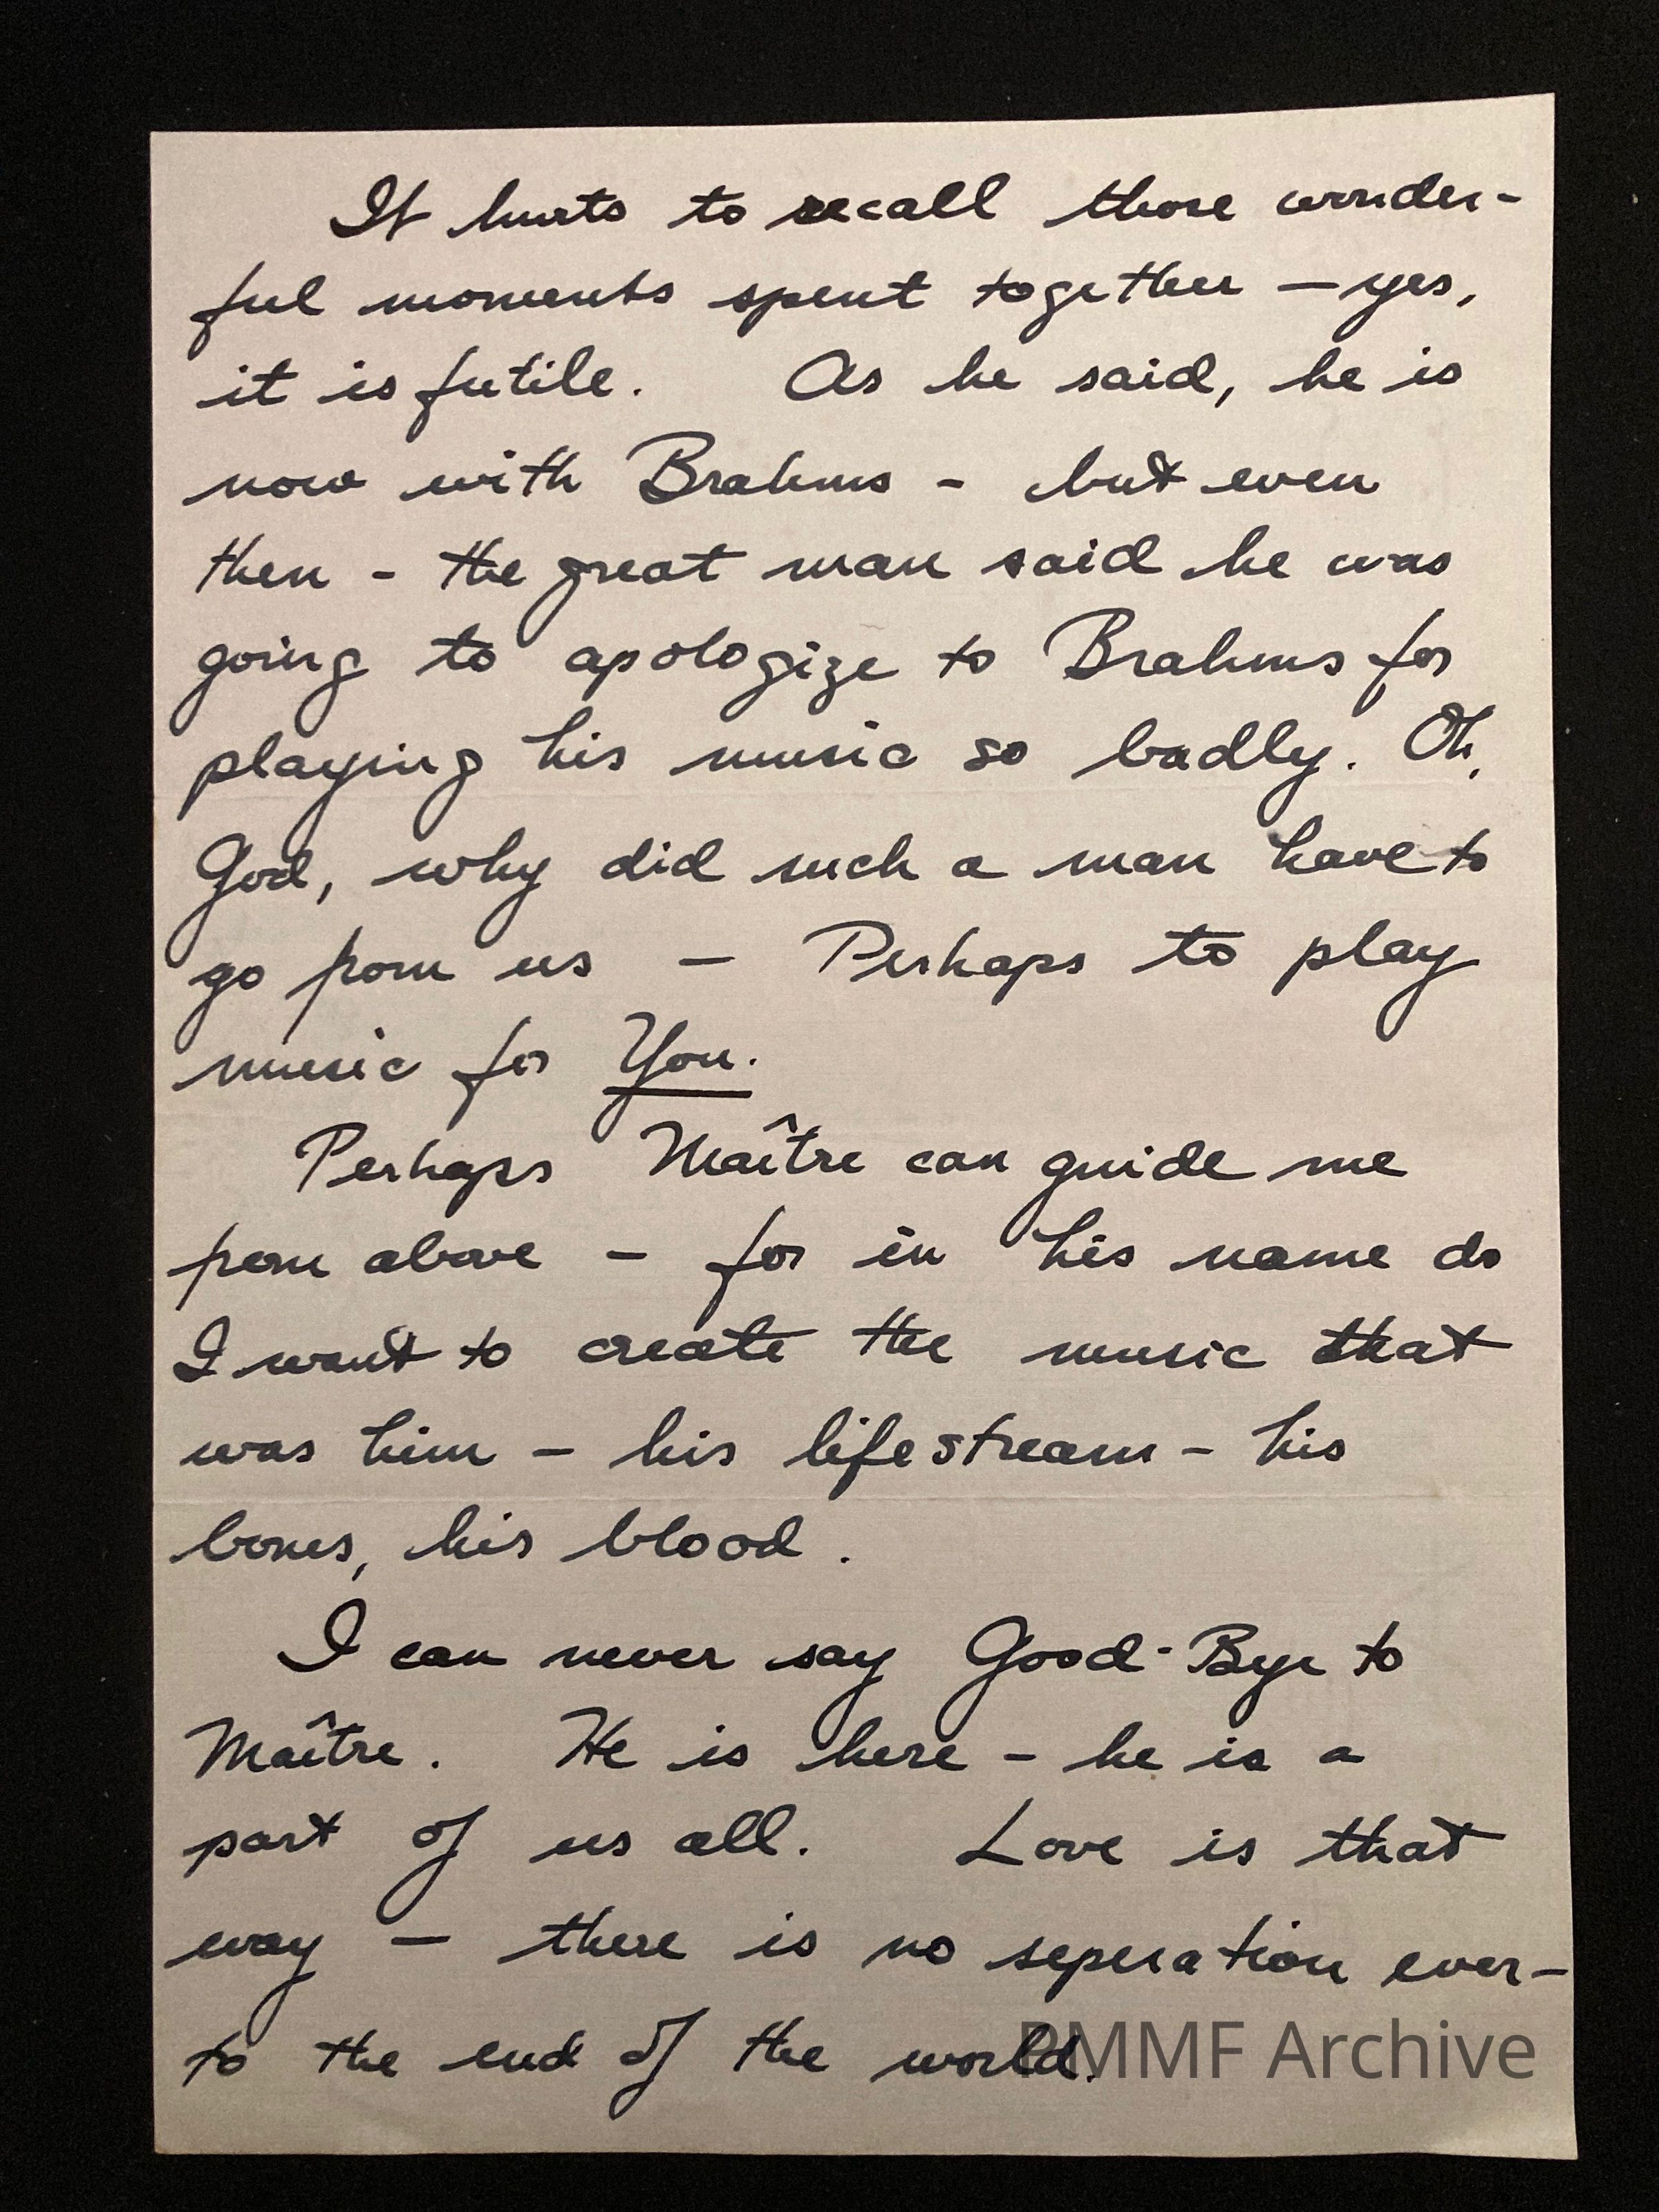 It hurts to recall those wonder-
ful moments spent together — yes,
it is futile. As he said, he is
now with Brahms - but even
then - the great man said he was
going to apologize to Brahms for
playing his music so badly. Oh,
God, why did such a man have to
go from us — Perhaps to play
music for You.
Perhaps Maître can guide me
from above — for in his name do
I want to create the music that
was him — his lifestream - his
bones, his blood.
I can never say Good-Bye to
Maître. He is here - he is a
part of us all. Love is that
way — there is no seperation ever—
to the end of the world.
PMMF Archive